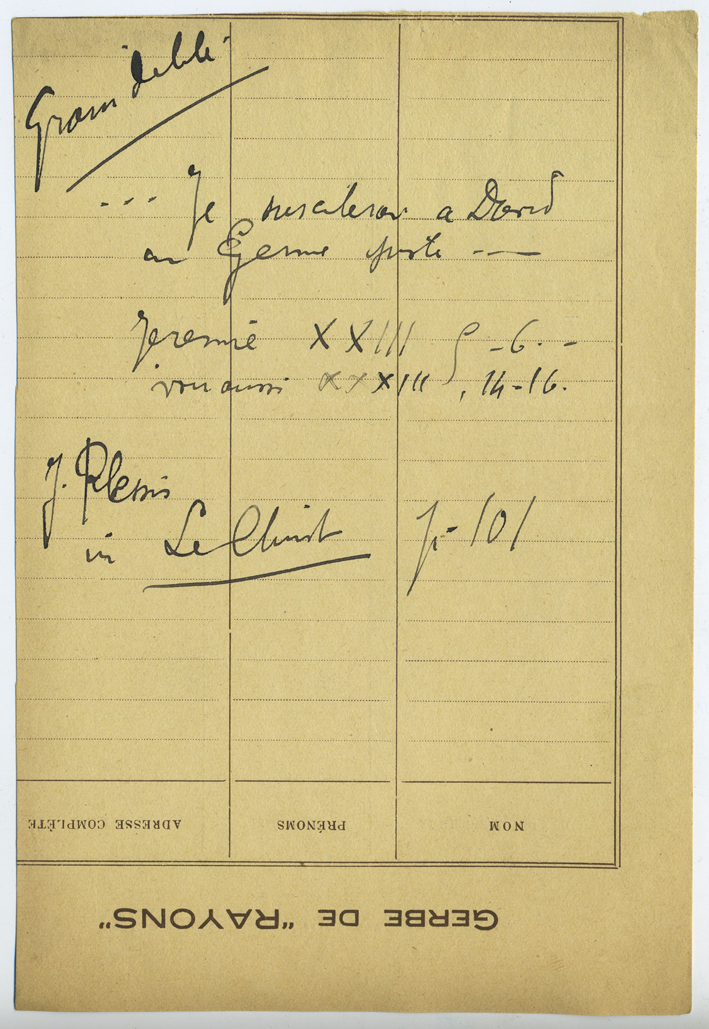 Grain de blé
... Je susciterai a David
un Germe juste —
Jeremie XXIII 5-6. -
voir aussi XXXIII, 14-16.
J. Plessis
in Le Christ p. 101
ADRESSE COMPLÈTE PRÉNOMS NOM
GERBE DE "RAYONS"